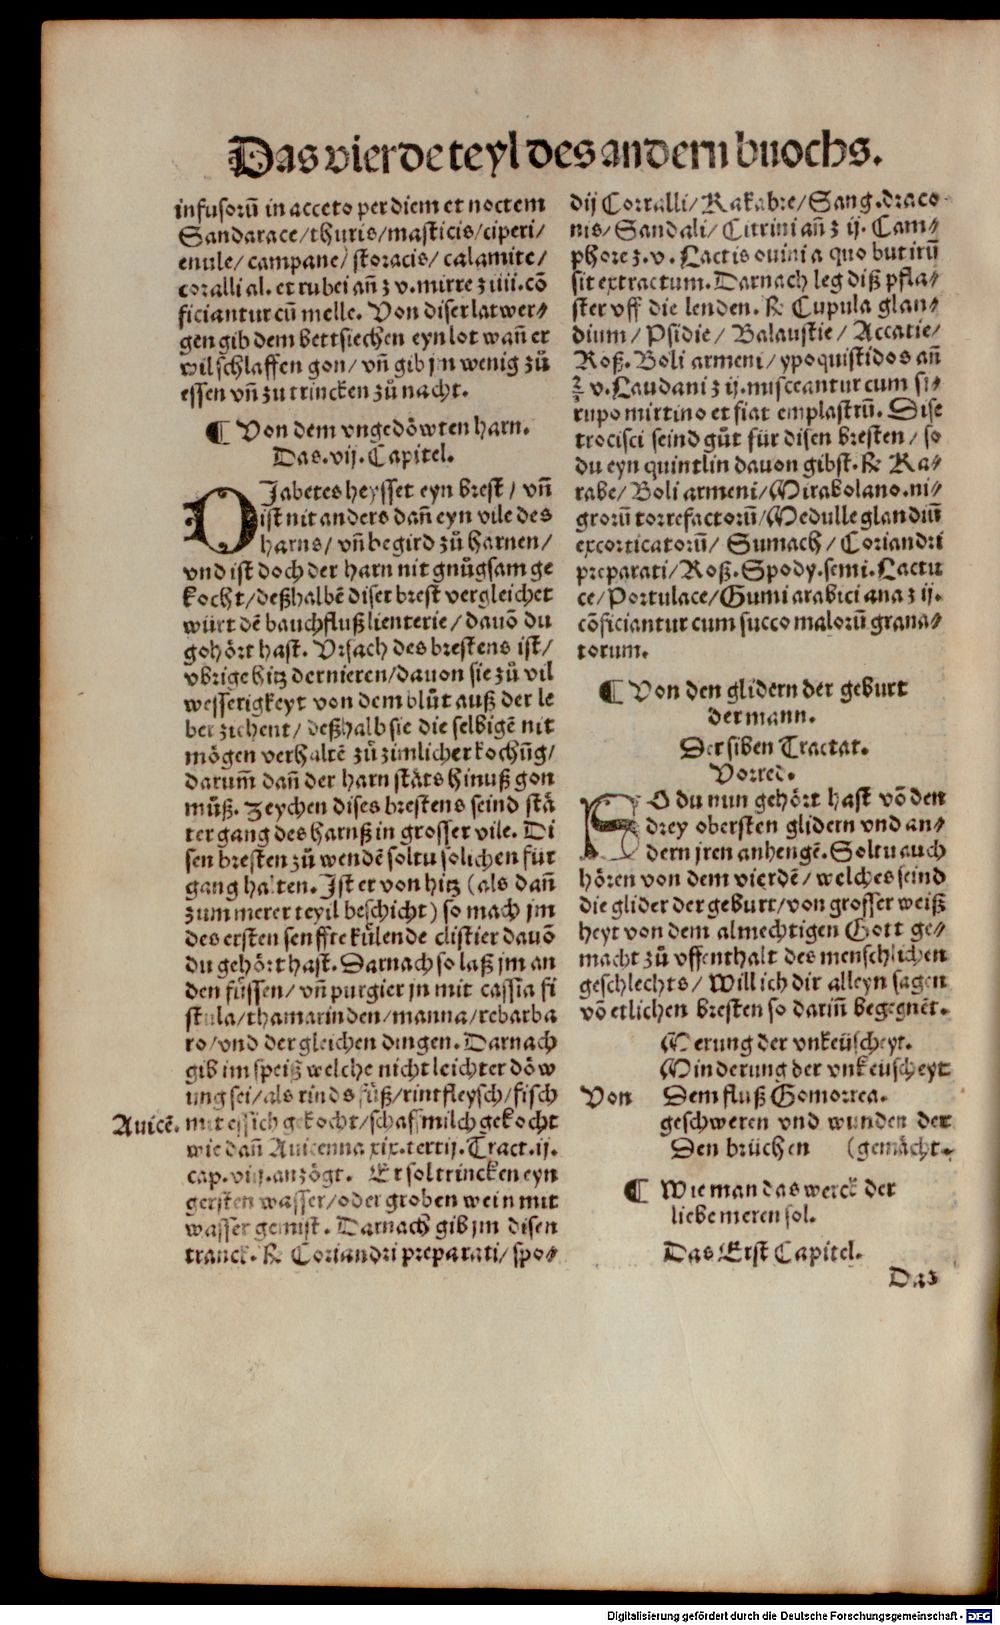 Das vierde teyl des andern buochs.
infusorū in acceto per diem et noctem
Sandarace/thuris/masticis/ciperi/
enule/campane/storacis/calamite/
coralli al. et rubei añ ʒ v. mirre ʒ iiii. cō
ficiantur cū melle. Von diser latwer⸗
gen gib dem bettsiechen eyn lot wañ er
wil schlaffen gon/ vñ gib jn wenig zů
essen vñ zu trincken zů nacht.
¶ Von dem vngedöwten harn.
Das .vij. Capitel.
DIabetes heysset eyn brest/ vñ
ist nit anders dañ eyn vile des
harns/ vñ begird zů harnen/
vnd ist doch der harn nit gnůgsam ge
kocht/deßhalbē diser brest vergleichet
würt dē bauchfluß lienterie/ dauō du
gehört hast. Vrsach des brestens ist/
vbrige hitz der nieren/dauon sie zů vil
wesserigkeyt von dem blůt auß der le
ber ziehent/ deßhalb sie die selbigē nit
mögen verhaltē zů zimlicher kochūg/
darum̃ dañ der harn stäts hinuß gon
můß. Zeychen dises brestens seind stä
ter gang des harnß in grosser vile. Di
sen bresten zů wendē soltu solichen für
gang halten. Ist er von hitz (als dañ
zum merer teyil beschicht) so mach jm
des ersten senffte külende clistier dauō
du gehört hast. Darnach so laß jm an
den füssen/ vñ purgier jn mit cassia fi
stula/thamarinden/manna/rebarba
ro/vnd der gleichen dingen. Darnach
gib im speiß welche nicht leichter döw
ung sei/als rinds füß/rintfleysch/fisch
Auicē. mit essich gekocht/schaffmilch gekocht
wie dañ Auicenna xix. tertij. Tract. ij.
cap. viij. anzögt. Er sol trincken eyn
gersten wasser/oder groben wein mit
wasser gemist. Darnach gib jm disen
tranck. ℞ Coriandri preparati/ spo⸗
dij Corralli/ Kakabre/Sang. draco⸗
nis/ Sandali/ Citrini añ ʒ ij. Cam⸗
phore ʒ. v. Lactis ouini a quo butirū
sit extractum. Darnach leg diß pfla⸗
ster vff die lenden. ℞ Cupula glan⸗
dium/ Psidie/ Balaustie/ Accatie/
Roß. Boli armeni/ ypoquistidos añ
℥ v. Laudani ʒ ij. misceantur cum si⸗
rupo mirtino et fiat emplastrū. Dise
trocisci seind gůt für disen bresten/ so
du eyn quintlin dauon gibst. ℞ Ka⸗
rabe/ Boli armeni/Mirabolano. ni⸗
grorū torrefactorū/Medulle glandiū
excorticatorū/ Sumach/ Coriandri
preparati/ Roß. Spody. semi. Lactu
ce/Portulace/Gumi arabici ana ʒ ij.
cōficiantur cum succo malorū grana⸗
torum.
¶ Von den glidern der geburt
der mann.
Der siben Tractat.
Vorred.
SO du nun gehört hast vō den
drey obersten glidern vnd an⸗
dern jren anhengē. Soltu auch
hören von dem vierdē/ welches seind
die glider der geburt/von grosser weiß
heyt von dem almechtigen Gott ge⸗
macht zů vffenthalt des menschlichen
geschlechts/ Will ich dir alleyn sagen
vō etlichen bresten so dariñ begegnēt.
Merung der vnkeüscheyt.
Minderung der vnkeüscheyt
Von Dem fluß Gomorrea.
geschweren vnd wunden der
Den brüchen (gemächt.
¶ Wie man das werck der
liebe meren sol.
Das Erst Capitel.
Das
Digitalisierung gefördert durch die Deutsche Forschungsgemeinschaft - DFG